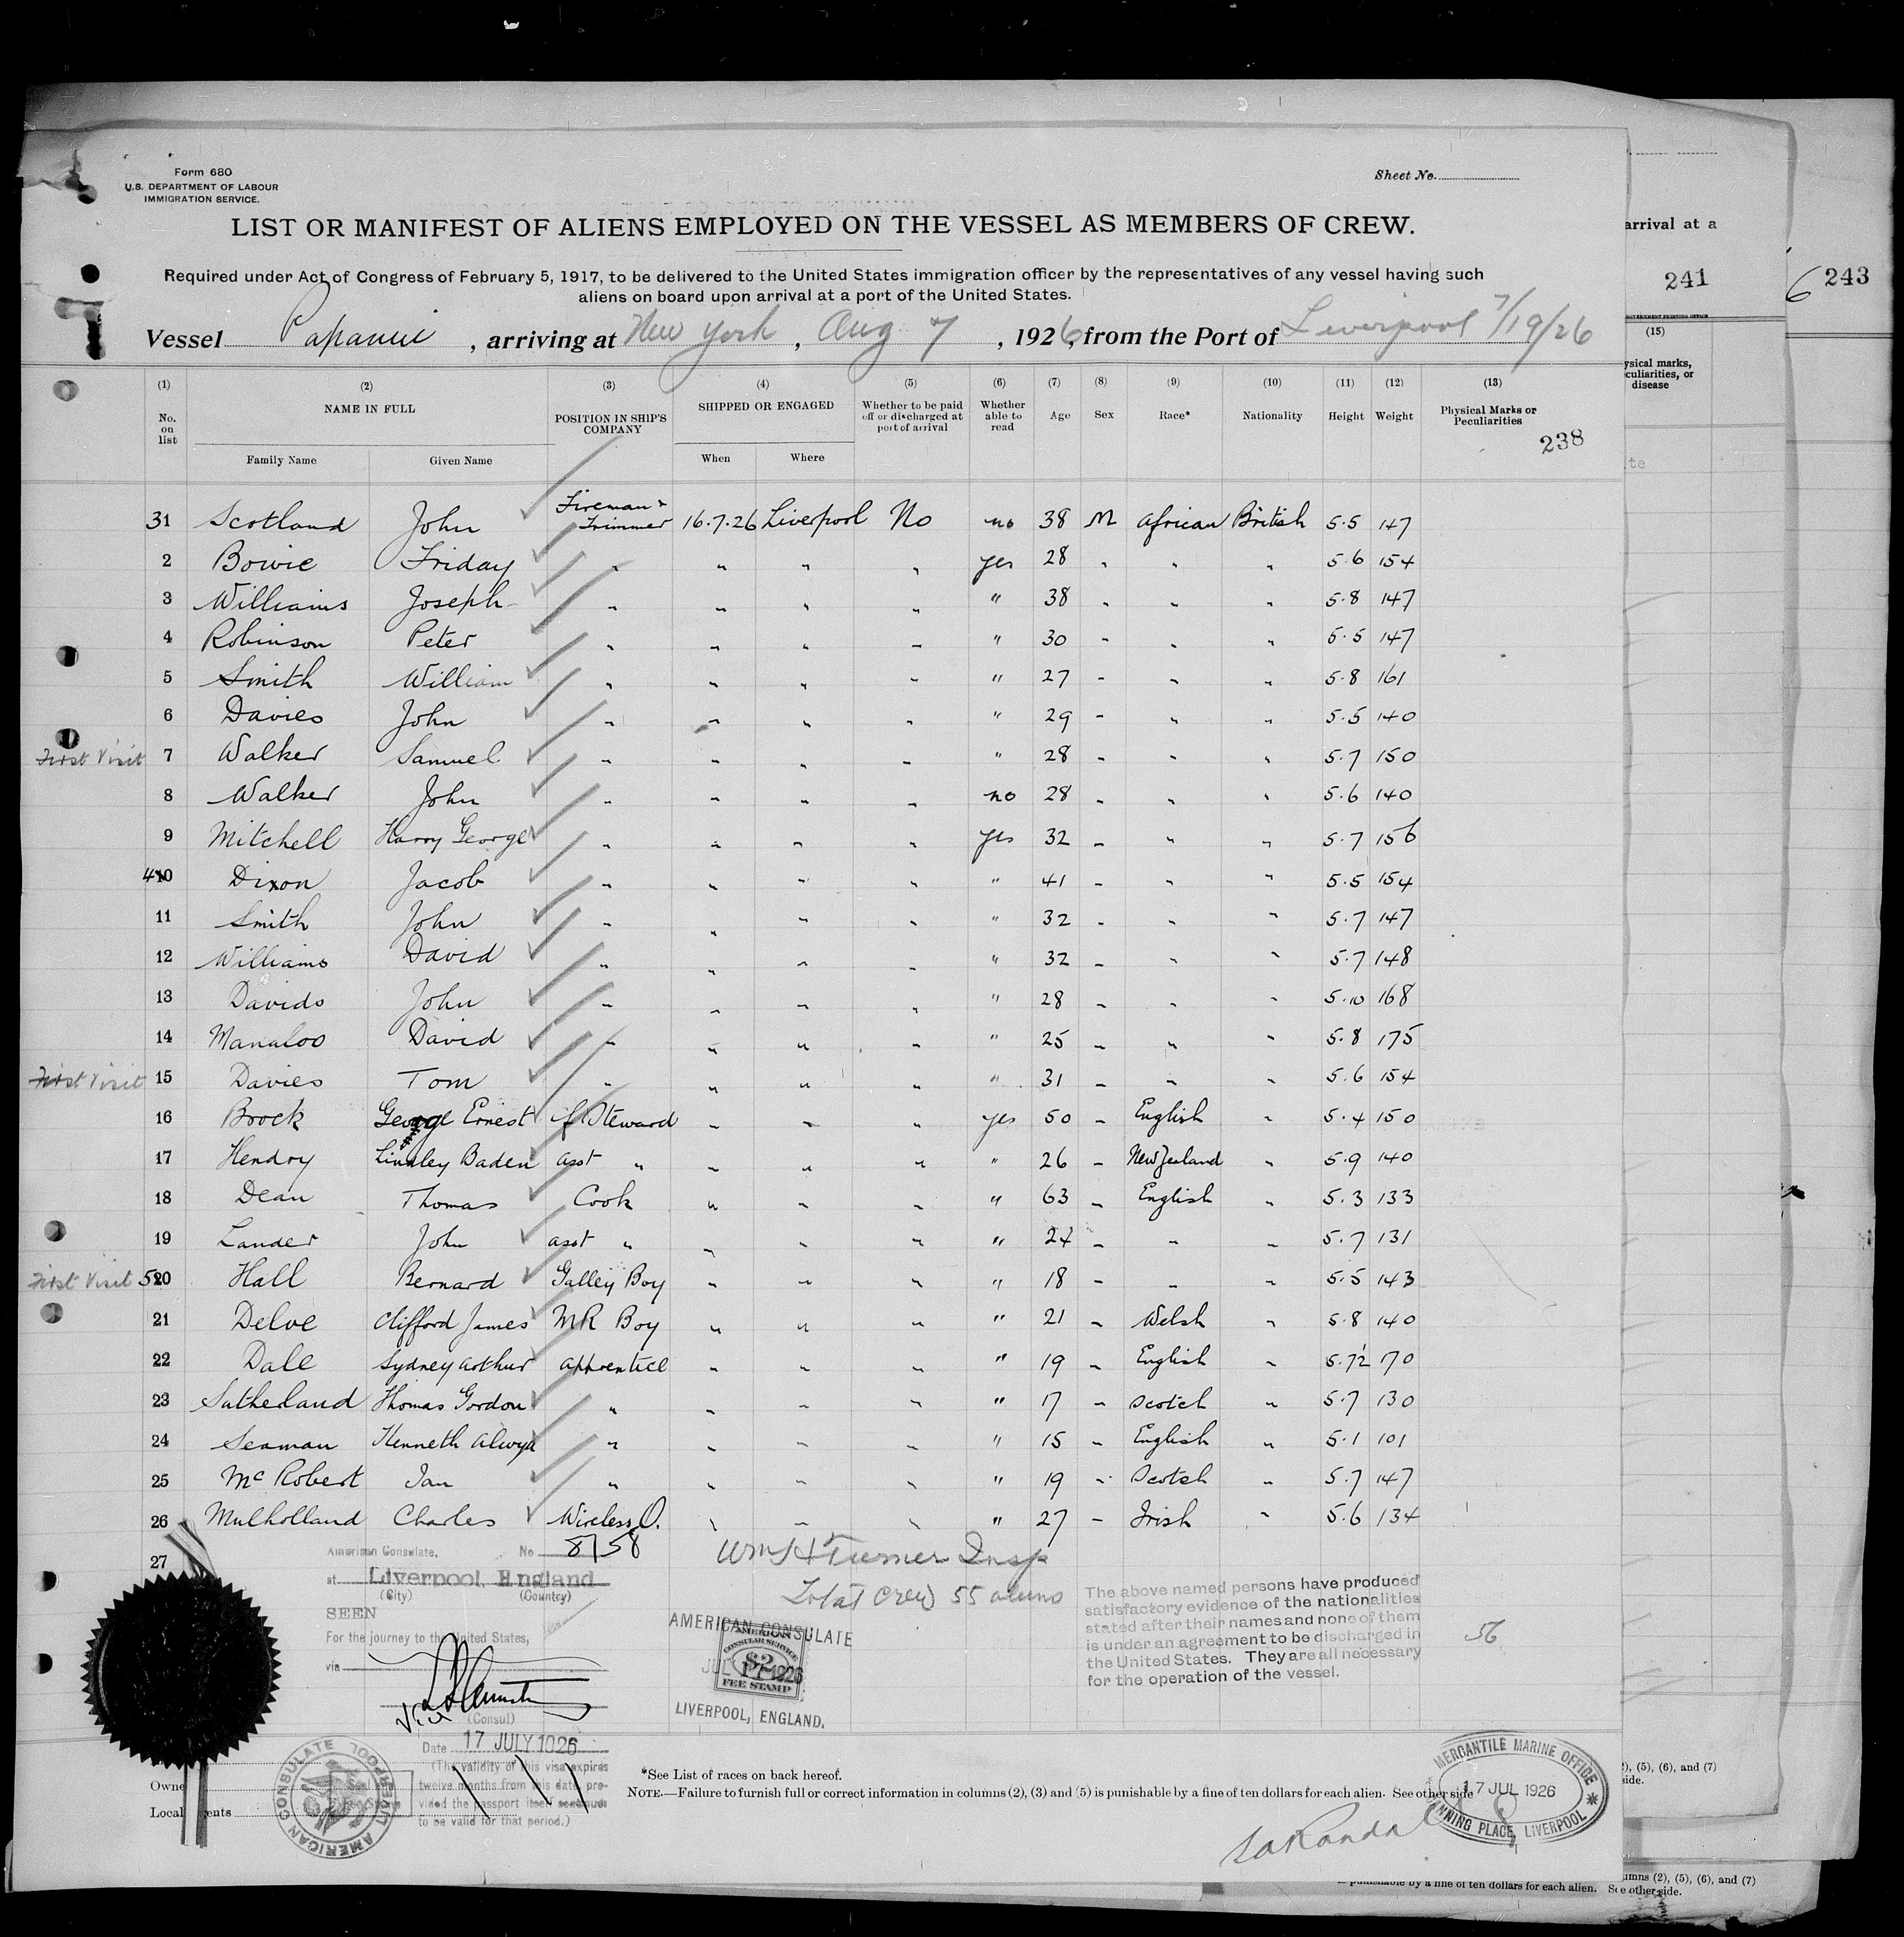 Form 680
U.S. DEPARTMENT OF LABOUR
IMMIGRATION SERVICE.
Sheet No.
LIST OR MANIFEST OF ALIENS EMPLOYED ON THE VESSEL AS MEMBERS OF CREW.
Required under Act of Congress of February 5, 1917, to be delivered to the United States immigration officer by the representatives of any vessel having such
aliens on board upon arrival at a port of the United States.
Vessel Paparoa, arriving at New York, Aug 7, 1926, from the Port of Liverpool 7/19/26
(1) (2) (3) (4) (5) (6) (7) (8) (9) (10) (11) (12) (13)
No. on list NAME IN FULL POSITION IN SHIP'S COMPANY SHIPPED OR ENGAGED Whether to be paid off or discharged at port of arrival Whether able to read Age Sex Race* Nationality Height Weight Physical Marks or Peculiarities
Family Name Given Name When Where
238
31 Scotland John Fireman & Trimmer 16.7.26 Liverpool No no 38 M African British 5.5 147
2 Bowie Friday " " " " yes 28 " " " 5.6 154
3 Williams Joseph " " " " " 38 " " " 5.8 147
4 Robinson Peter " " " " " 30 " " " 5.5 147
5 Smith William " " " " " 27 " " " 5.8 161
6 Davies John " " " " " 29 " " " 5.5 140
First Visit 7 Walker Samuel " " " " " 28 " " " 5.7 150
8 Walker John " " " " no 28 " " " 5.6 140
9 Mitchell Harry George " " " " yes 32 " " " 5.7 156
40 Dixon Jacob " " " " " 41 " " " 5.5 154
11 Smith John " " " " " 32 " " " 5.7 147
12 Williams David " " " " " 32 " " " 5.7 148
13 Davids John " " " " " 28 " " " 5.10 168
14 Manaloo David " " " " " 25 " " " 5.8 175
First Visit 15 Davies Tom " " " " " 31 " " " 5.6 154
16 Brock George Ernest Steward " " " yes 50 " English " 5.4 150
17 Hendry Lindley Baden asst " " " " " 26 " New Zealand " 5.9 140
18 Dean Thomas Cook " " " " 63 " English " 5.3 133
19 Lander John asst " " " " " 24 " " " 5.7 131
First Visit 50 Hall Bernard Galley Boy " " " " 18 " " " 5.5 143
21 Delve Clifford James MR Boy " " " " 21 " Welsh " 5.8 140
22 Dale Sydney Arthur apprentice " " " " 19 " English " 5.7½ 170
23 Sutherland Thomas Gordon " " " " " 17 " Scotch " 5.7 130
24 Seaman Kenneth Alwyn " " " " " 15 " English " 5.1 101
25 McRobert Ian " " " " " 19 " Scotch " 5.7 147
26 Mulholland Charles Wireless O. " " " " 27 " Irish " 5.6 134
27
American Consulate. No 8158
at Liverpool, England
(City) (Country)
SEEN
For the journey to the United States,
via
Vice
(Consul)
Date 17 JULY 1926
(The validity of this visa expires
twelve months from this date, pro-
vided the passport itself continues
to be valid for that period.)
Wm H Turner Insp
Total crew 55 aliens
AMERICAN CONSULATE
AMERICAN CONSULAR SERVICE
$2
FEE STAMP
JUL 17 1926
LIVERPOOL, ENGLAND.
The above named persons have produced
satisfactory evidence of the nationalities
stated after their names and none of them
is under an agreement to be discharged in
the United States. They are all necessary
for the operation of the vessel.
56
Owne
Local ents
AMERICAN CONSULATE LIVERPOOL
*See List of races on back hereof.
NOTE.—Failure to furnish full or correct information in columns (2), (3) and (5) is punishable by a fine of ten dollars for each alien. See other side
MERCANTILE MARINE OFFICE
17 JUL 1926
CANNING PLACE, LIVERPOOL
arrival at a
241
243
6
GOVERNMENT PRINTING OFFICE
(15)
ysical marks,
culiarities, or
disease
te
), (5), (6), and (7)
side.
umns (2), (5), (6), and (7)
is punishable by a fine of ten dollars for each alien. See other side.